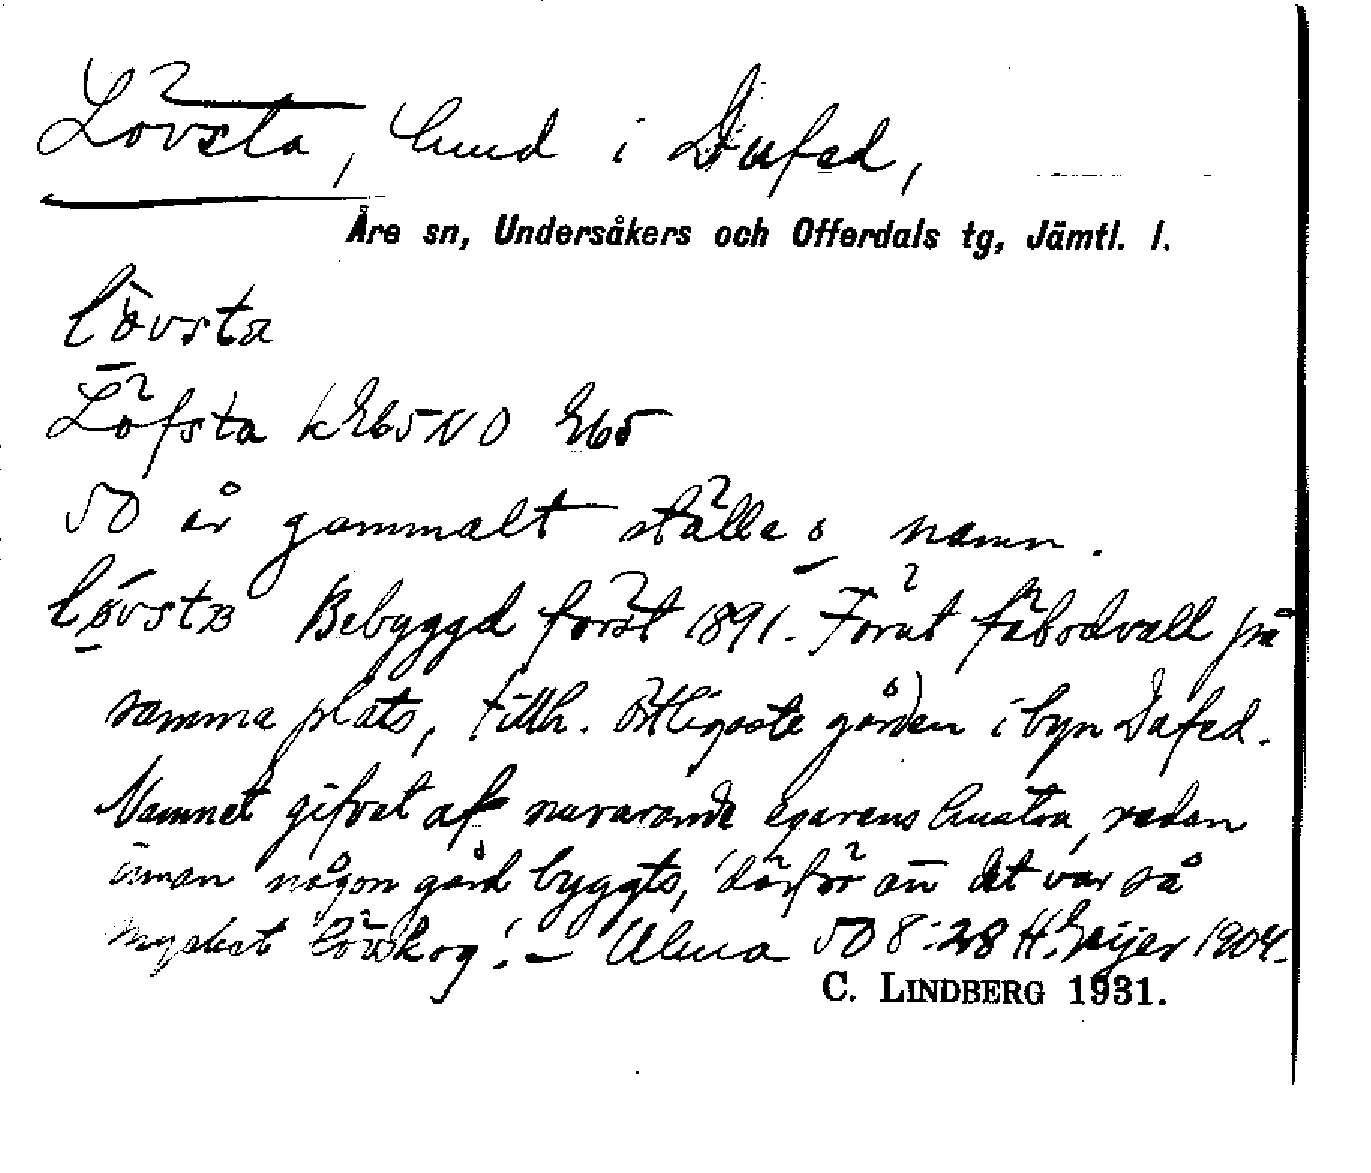 Lövsta, hmd i Dufed,
Åre sn, Undersåkers och Offerdals tg, Jämtl. l.
lövsta
Löfsta k E65NO E65
50 år gammalt ställe o namn.
Bebyggd först 1891. Förut fäbodvall på
samma plats, tillh. östligaste gården i byn Dufed.
Namnet gifvet af nuvarande egarens hustru, redan
innan någon gård byggts, "därför att det var så
mycket lövskog". - Alma 50 8-28 H. Geijer 1904.
C. LINDBERG 1931.